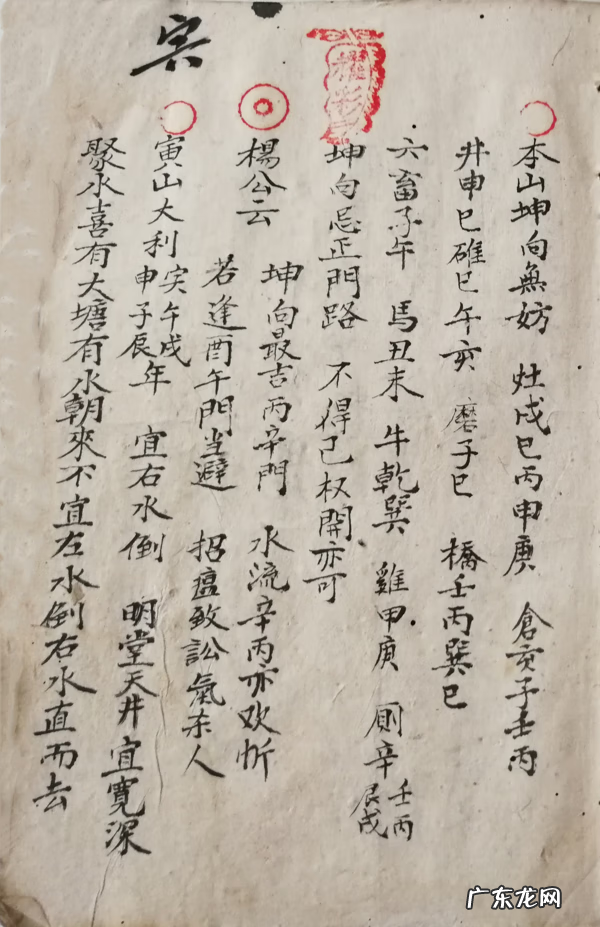 寅
本山坤向無妨 灶戌巳丙申庚 倉亥子壬丙
井申巳碓巳午亥 磨子巳 橋壬丙巽巳
六畜子午 馬丑未 牛乾巽 雞甲庚 厠辛壬丙辰戌
坤向忌正門路 不得已权開亦可
楊公云 坤向最吉丙辛門 水流辛丙亦欢忻
若逢酉午門当避 招瘟致訟氣杀人
寅山大利寅午戌申子辰年 宜右水倒 明堂天井宜寬深
聚水喜有大塘有水朝來不宜左水倒右水直而去
广东龙网